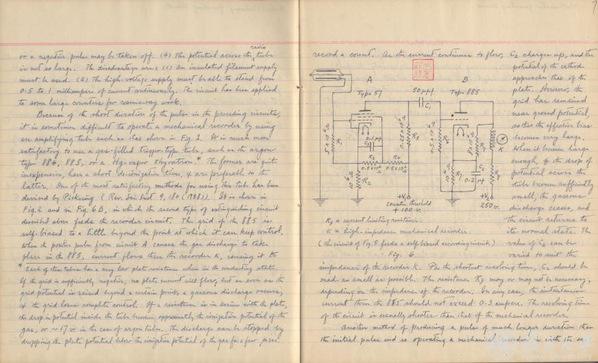 radio
or a negative pulse may be taken off. (4) The potential across the tube
is not so large. The disadvantages are: (1) An insulated filament supply
must be used. (2) The high-voltage supply must be able to stand from
0.5 to 1 milliampere of current continuously. The circuit has been applied
to some large counters for cosmic-ray work.
Because of the short duration of the pulses in the preceding circuits,
it is sometimes difficult to operate a mechanical recorder by using
an amplifying tube such as has shown in Fig. 2. It is much more
satisfactory to use a gas-filled trigger-type tube, such as the argon
type 884, 885, or a Hg-vapor thyratron.* The former are quite
inexpensive, have a short deionization time, & are preferable to the
latter. One of the most satisfactory methods for using this tube has been
devised by Pickering (Rev. Sci. Inst. 9, 180 (1938)). It is shown in
Fig. 6 and in Fig. 6B, in which the second type of extinction circuit
described above feeds the recorder circuit. The grid of the 885 is
self-biased to a little beyond the point at which it can keep control.
When the positive pulse from circuit A causes the gas discharge to take
place in the 885, current flows thru the recorder K, causing it to
* Each of these tubes has a very low plate resistance when in the conducting state.
If the grid is sufficiently negative, no plate current will flow, but as soon as the
grid potential is raised beyond a certain point, a gaseous discharge occurs,
& the grid loses complete control. If a resistance is in series with the plate,
the drop in potential inside the tube becomes approximately the ionization potential of the
gas, or ~17 v. in the case of argon tubes. The discharge can be stopped by
dropping the plate potential below the ionization potential of the gas for a few μsec.
7
record a count. As the current continues to flow, C₂ charges up, and the
potential of the cathode
approaches that of the
plate. However, the
grid has remained
near ground potential,
so that the effective bias
becomes very large.
When it becomes large
enough, & the drop of
potential across the
tube becomes sufficiently
small, the gaseous
discharge ceases, and
the circuit returns to
its normal state. The
value of C₂ can be
varied to suit the
A
B
Type 57
50 μμf
Type 885
C₁
K
R₁
R₂
C₂
+V₁
counter threshold
+100 v.
250 v.
R₃ = current limiting resistance
K = high-impedance mechanical recorder
(the circuit of Fig. 5 feeds a self-biased recording circuit)
Fig. 6
impedance of the recorder K. For the shortest resolving time, C₂ should be
made as small as possible. The resistance R₃ may or may not be necessary,
depending on the impedance of the recorder. In any case, the instantaneous
current thru the 885 should not exceed 0.3 ampere. The resolving time
of the circuit is usually shorter than that of the mechanical recorder.
Another method of producing a pulse of much longer duration than
the initial pulse and so operating a mechanical recorder is with the so-